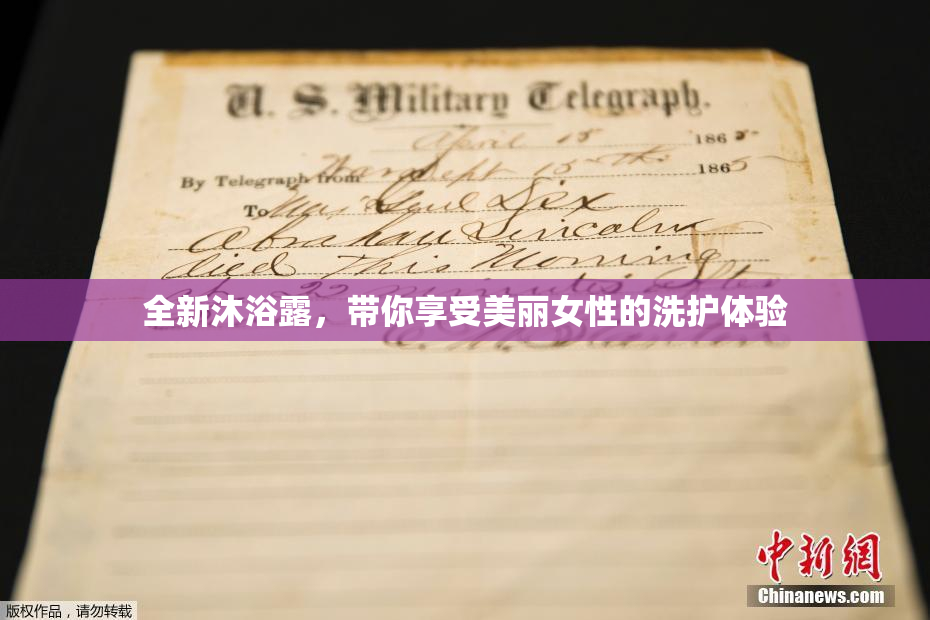 U. S. Military Telegraph.
April 15 1865
By Telegraph from War Dept 15th 1865
To Maj Genl Dix
Abraham Lincoln
died This Morning
22 minutes after
全新沐浴露，带你享受美丽女性的洗护体验
E. M. Stanton
中新网
Chinanews.com
版权作品，请勿转载